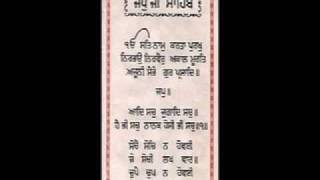 ਜਪੁ ਜੀ ਸਾਹਿਬ
ੴ ਸਤਿ ਨਾਮੁ ਕਰਤਾ ਪੁਰਖੁ
ਨਿਰਭਉ ਨਿਰਵੈਰੁ ਅਕਾਲ ਮੂਰਤਿ
ਅਜੂਨੀ ਸੈਭੰ ਗੁਰ ਪ੍ਰਸਾਦਿ॥
ਜਪੁ॥
ਆਦਿ ਸਚੁ ਜੁਗਾਦਿ ਸਚੁ॥
ਹੈ ਭੀ ਸਚੁ ਨਾਨਕ ਹੋਸੀ ਭੀ ਸਚੁ॥੧॥
ਸੋਚੈ ਸੋਚਿ ਨ ਹੋਵਈ
ਜੇ ਸੋਚੀ ਲਖ ਵਾਰ॥
ਚੁਪੈ ਚੁਪ ਨ ਹੋਵਈ